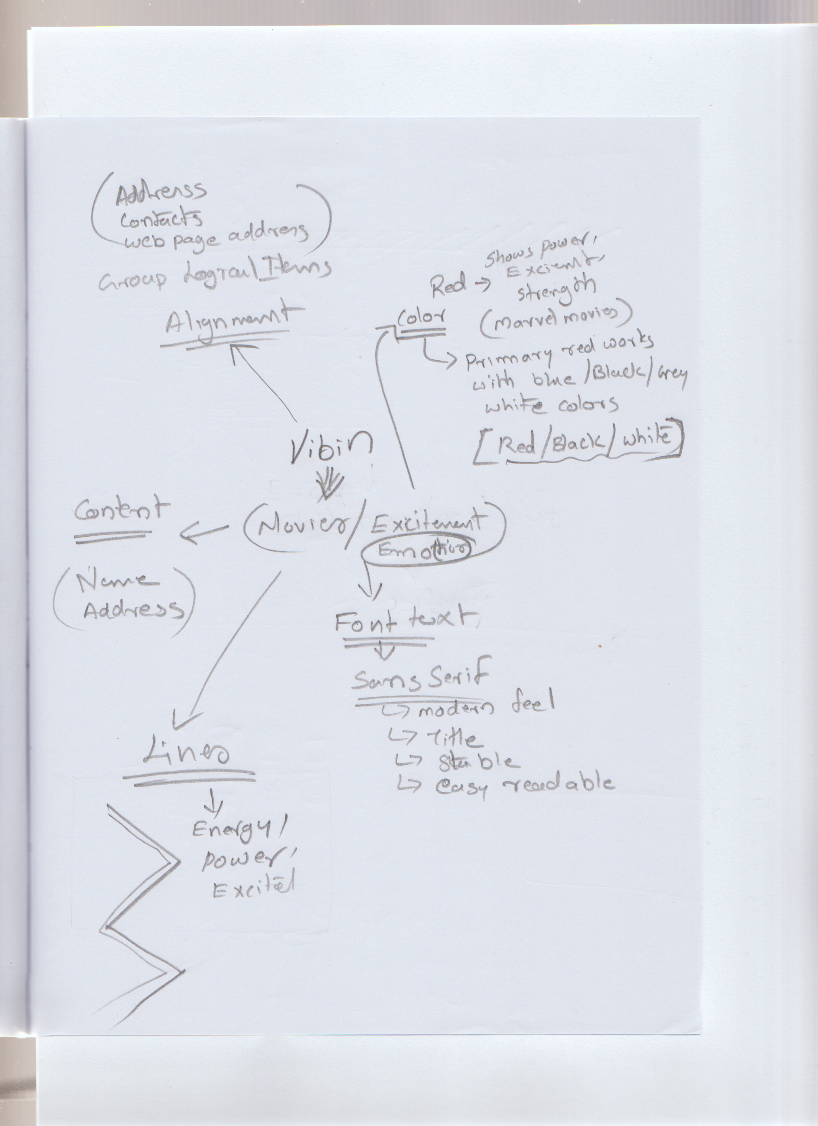 (Addresss
Contacts
web page address)
Group Logical Items
Alignment
Color
Red → shows power,
Exciemt,
strength
(Marvel movies)
↳ Primary red works
with blue/Black/Grey
white colors
[Red/Black/white]
Vibin
(Movies/Excitement)
Emotion
Content
(Name
Address)
Font text
Sans Serif
↳ modern feel
↳ Title
↳ stable
↳ easy readable
Lines
Energy/
power,
Excited